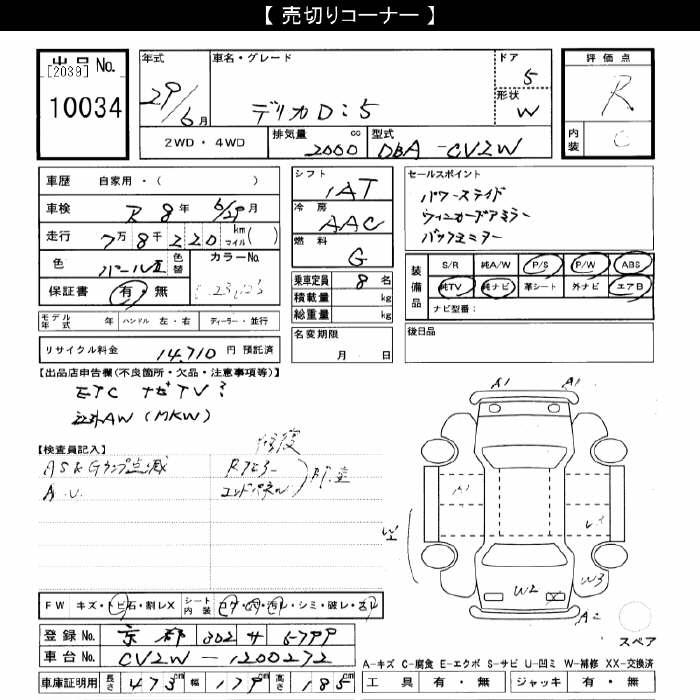 【 売切りコーナー 】
出品No.
[2039]
10034
年式 29/6月
車名・グレード
デリカD:5
ドア 5
形状 W
評価点 R
内装 C
2WD・4WD
排気量 2000 cc
型式 DBA-CV2W
車歴 自家用・( )
車検 R 8年 6/29月
走行 7万8千220 km マイル( )
色 パールⅡ
色替
カラーNo.
保証書 有・無
シフト IAT
冷房 AAC
燃料 G
乗車定員 8名
積載量 kg
総重量 kg
セールスポイント
パワースライド
ウィンカードアミラー
装備品
S/R 純A/W P/S P/W ABS
純TV 純ナビ 革シート 外ナビ エアB
ナビ型番:
モデル年式 年 ハンドル 左・右 ディーラー・並行
名変期限 月 日
後日品
リサイクル料金 14,710 円 預託済
【出品店申告欄(不良箇所・欠品・注意事項等)】
ETC ナビTV
社外AW(MKW)
【検査員記入】
修復
A.U.
Rフロアー
エンドパネル
A1
A1
A1
W2
W3
A2
スペア
FW キズ・トビ石・割レX シート内装 コゲ・穴・汚レ・シミ・破レ・スレ
登録No. 京都 302 サ 5799
車台No. CV2W-1200272
車庫証明用 長さ 473cm 幅 179cm 高さ 185cm
A-キズ C-腐食 E-エクボ S-サビ U-凹ミ W-補修 XX-交換済
工具 有・無 ジャッキ 有・無